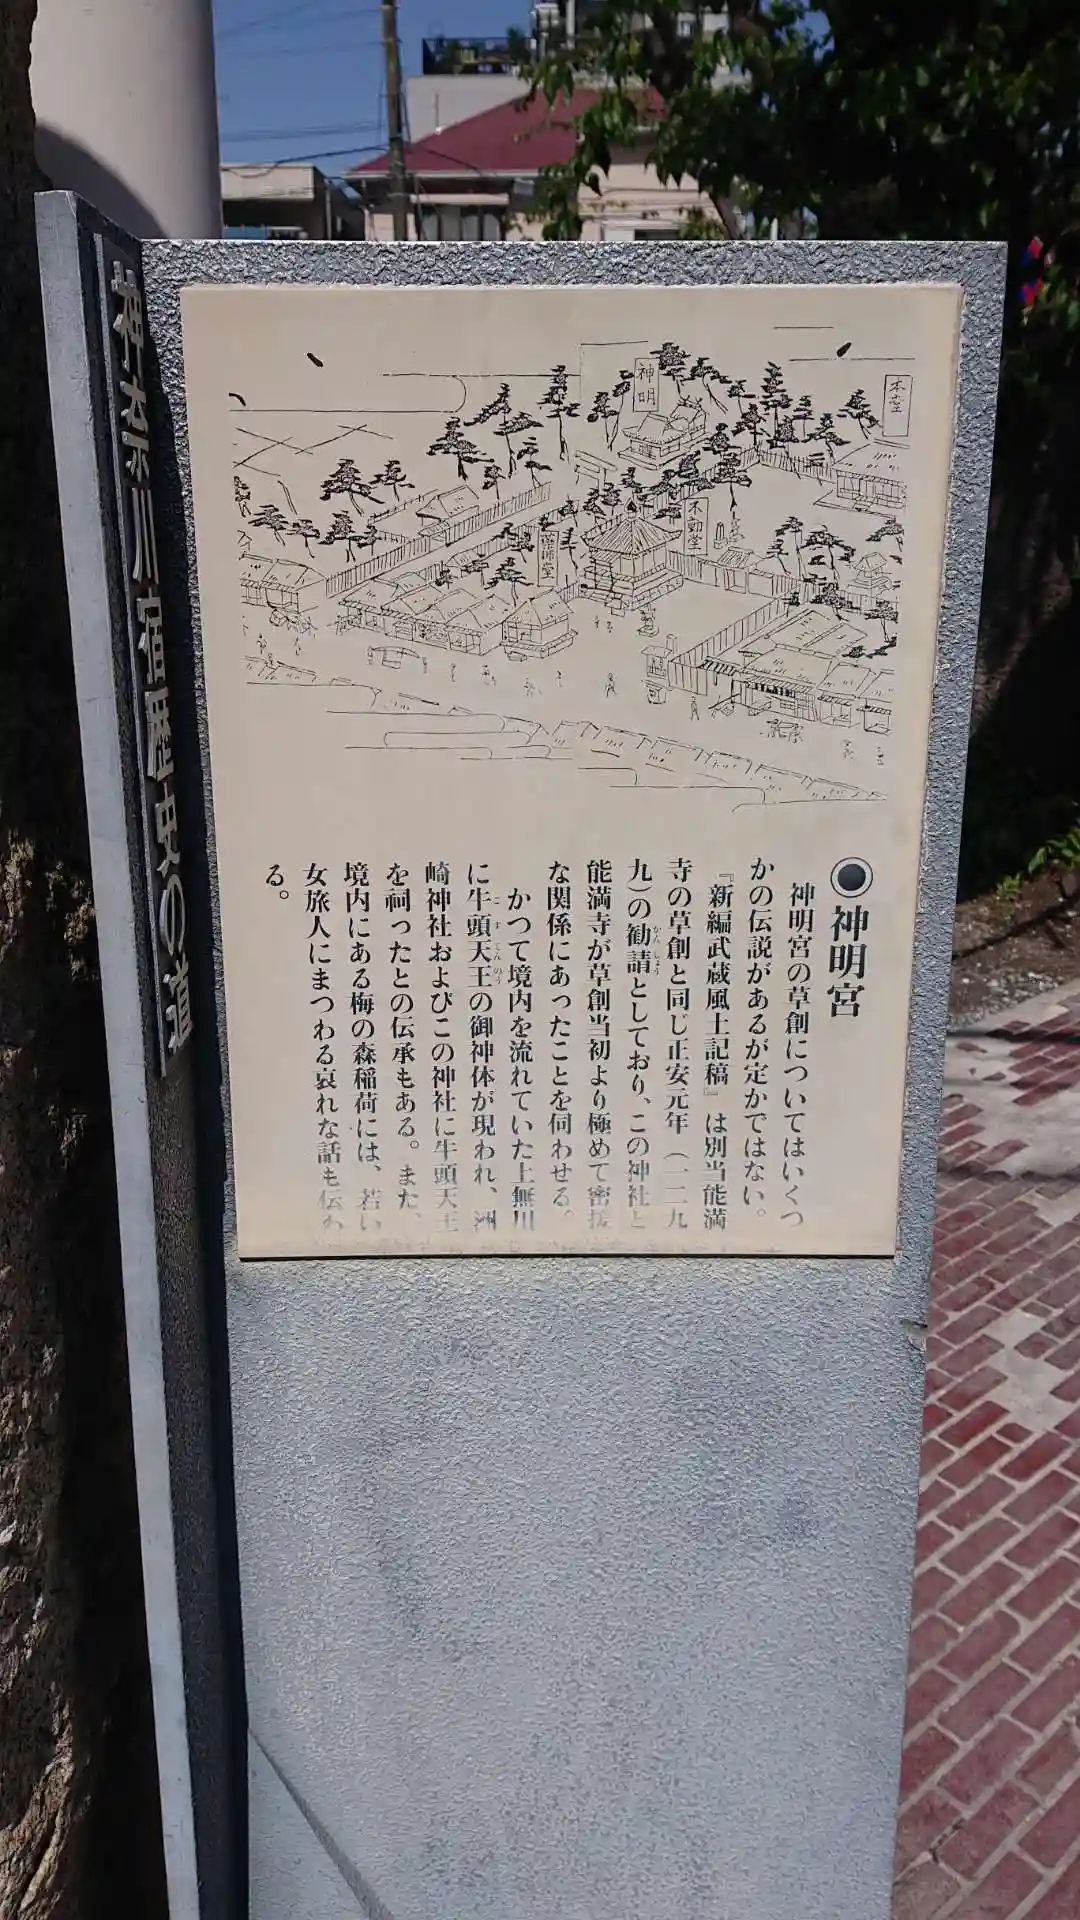 神奈川宿歴史の道
神明
本堂
不動堂
神明宮
神明宮の草創についてはいくつ
かの伝説があるが定かではない。
『新編武蔵風土記稿』は別当能満
寺の草創と同じ正安元年（一二九
九）の勧請としており、この神社と
かんじょう
能満寺が草創当初より極めて密接
な関係にあったことを伺わせる。
かつて境内を流れていた上無川
に牛頭天王の御神体が現われ、洲
ごずてんのう
崎神社およびこの神社に牛頭天王
を祠ったとの伝承もある。また、
境内にある梅の森稲荷には、若い
女旅人にまつわる哀れな話も伝わ
る。